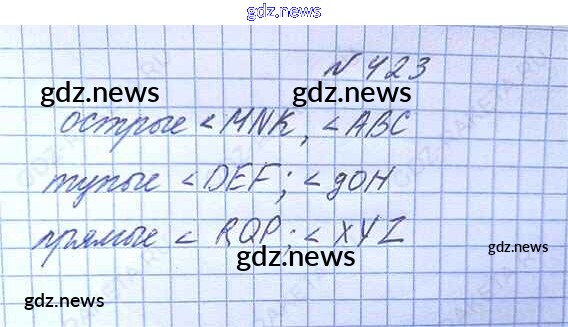 gdz.news
№ 423
gdz.news
gdz.news
острые <MNK, <ABC
тупые <DEF; <дОН
прямые < RQP; <XYZ
gdz.news
gdz.news
gdz.news